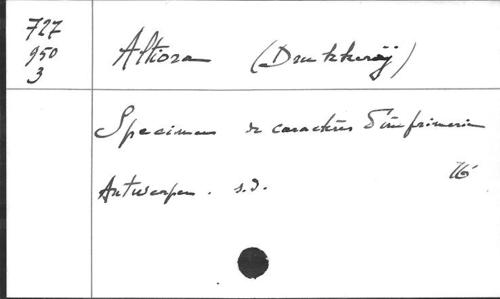 727
950
3
Altiora (Drukkerij)
Specimens de caractères d'imprimerie
Antwerpen. s.d. 16°